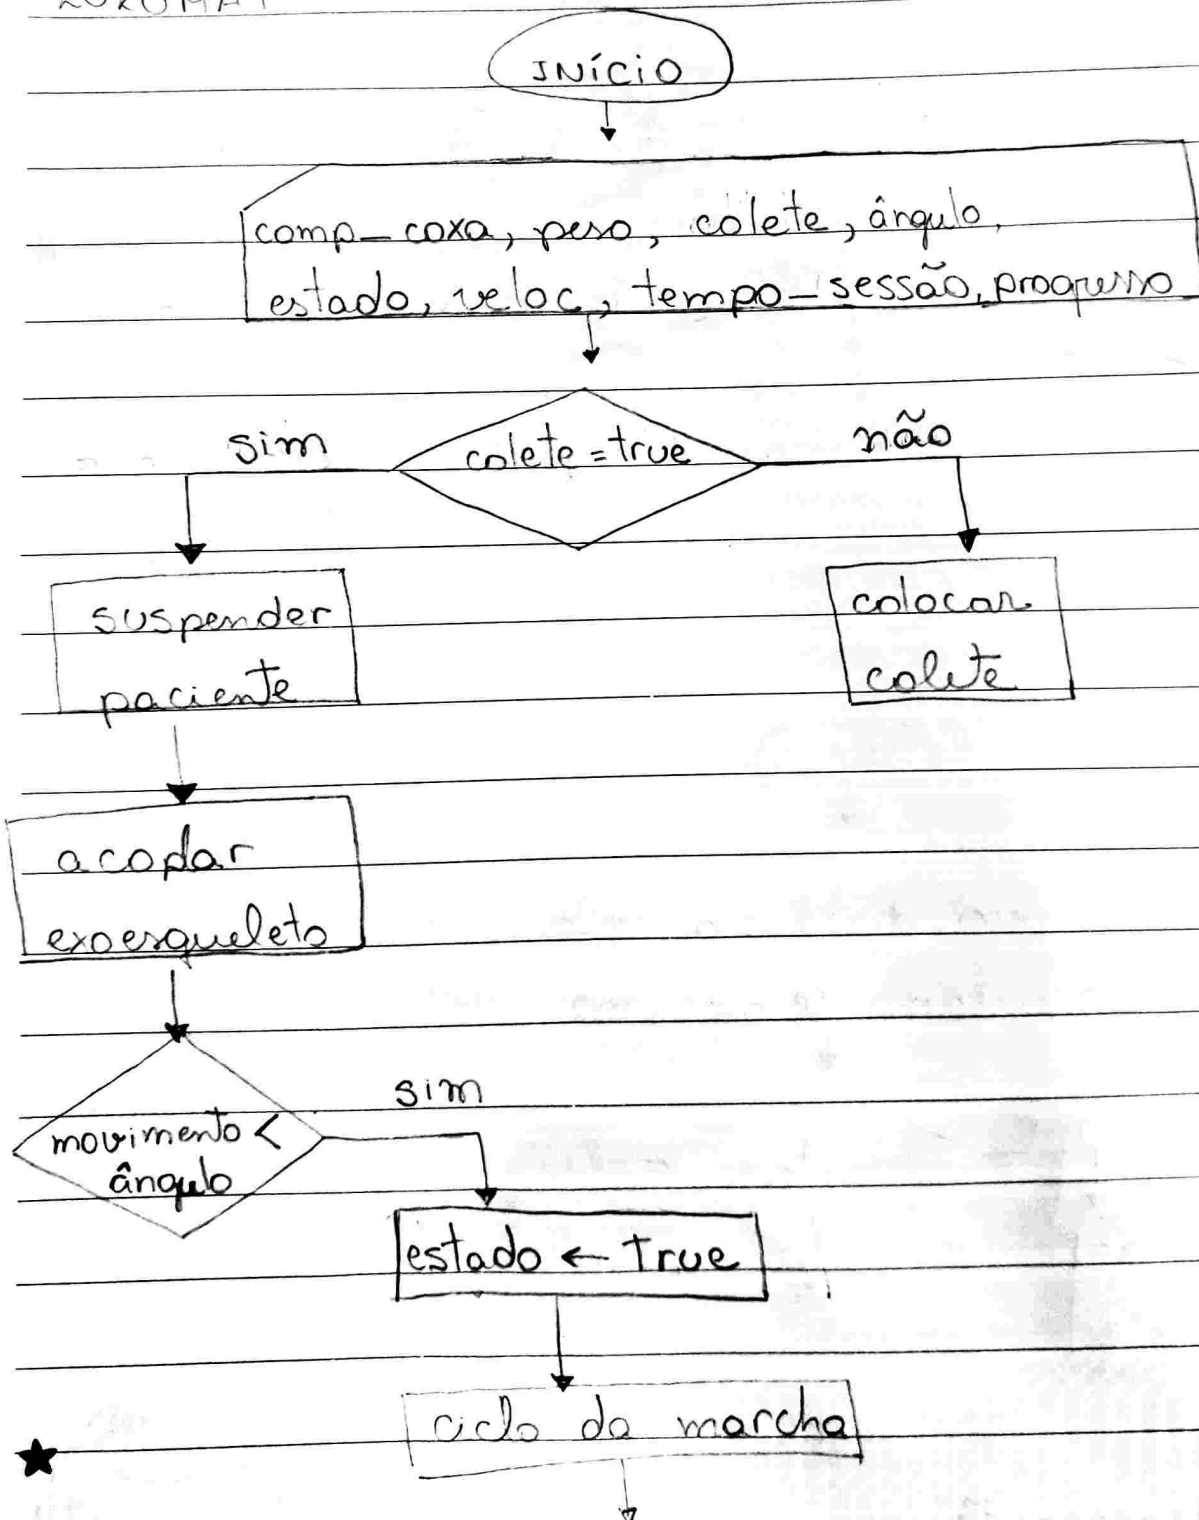 INÍCIO
comp_coxa, peso, colete, ângulo,
estado, veloc, tempo_sessão, progresso
sim
colete = true
não
suspender
paciente
colocar
colete
acoplar
exoesqueleto
sim
movimento <
ângulo
estado ← True
ciclo da marcha